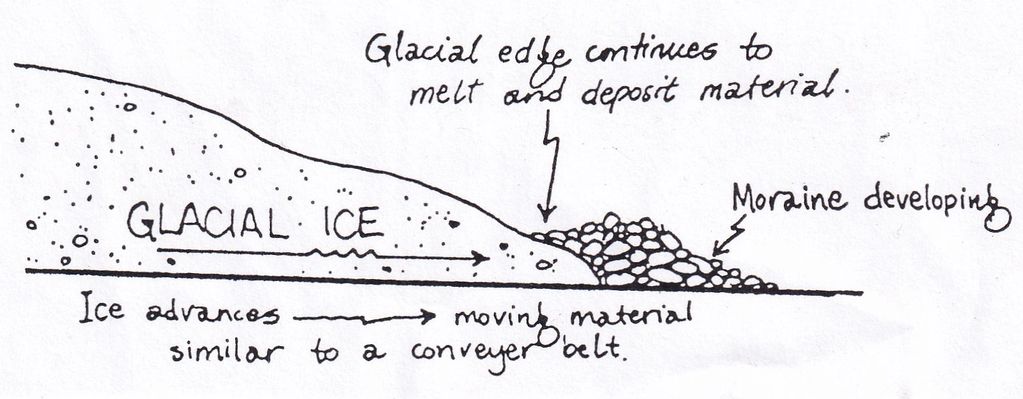 Glacial edge continues to
melt and deposit material.
Moraine developing
GLACIAL ICE
Ice advances → moving material
similar to a conveyer belt.